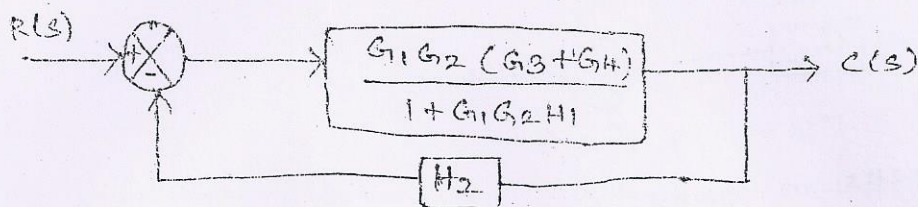 R(S)
+
-
G1G2 (G3+G4)
1+G1G2H1
C(S)
H2